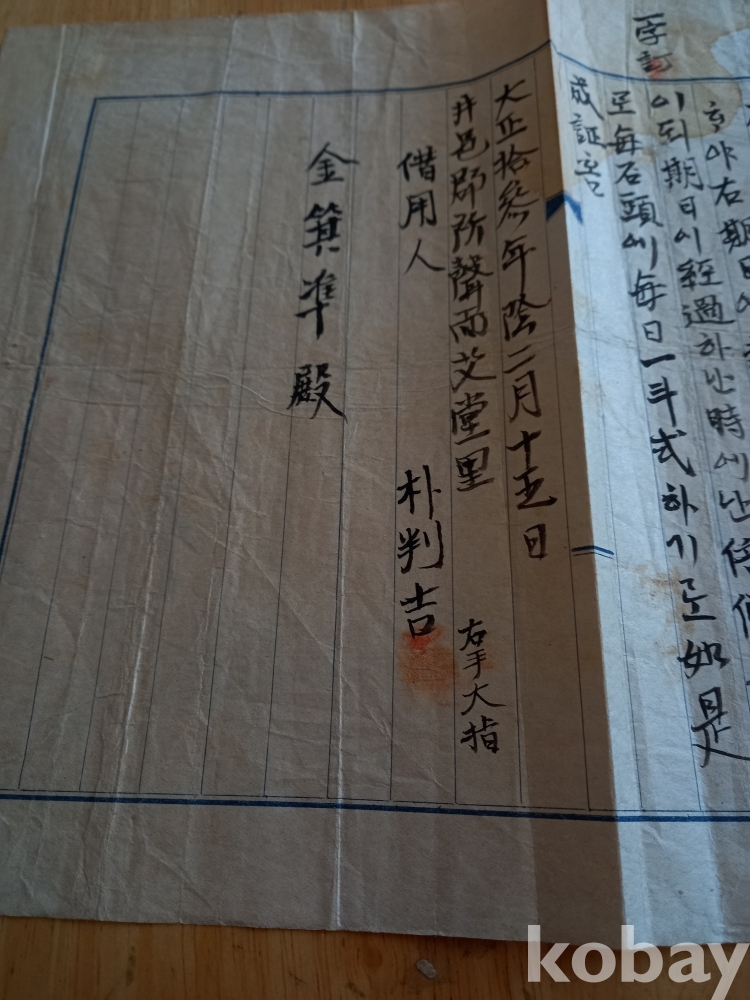 하야右期日에
이되期日이經過하난時에난
로每石頭에每日一斗式하기로如是
成証홈
一字訂
大正拾參年陰二月十五日
井邑郡所聲面艾堂里
右手大指
借用人 朴判吉
金箕準殿
kobay